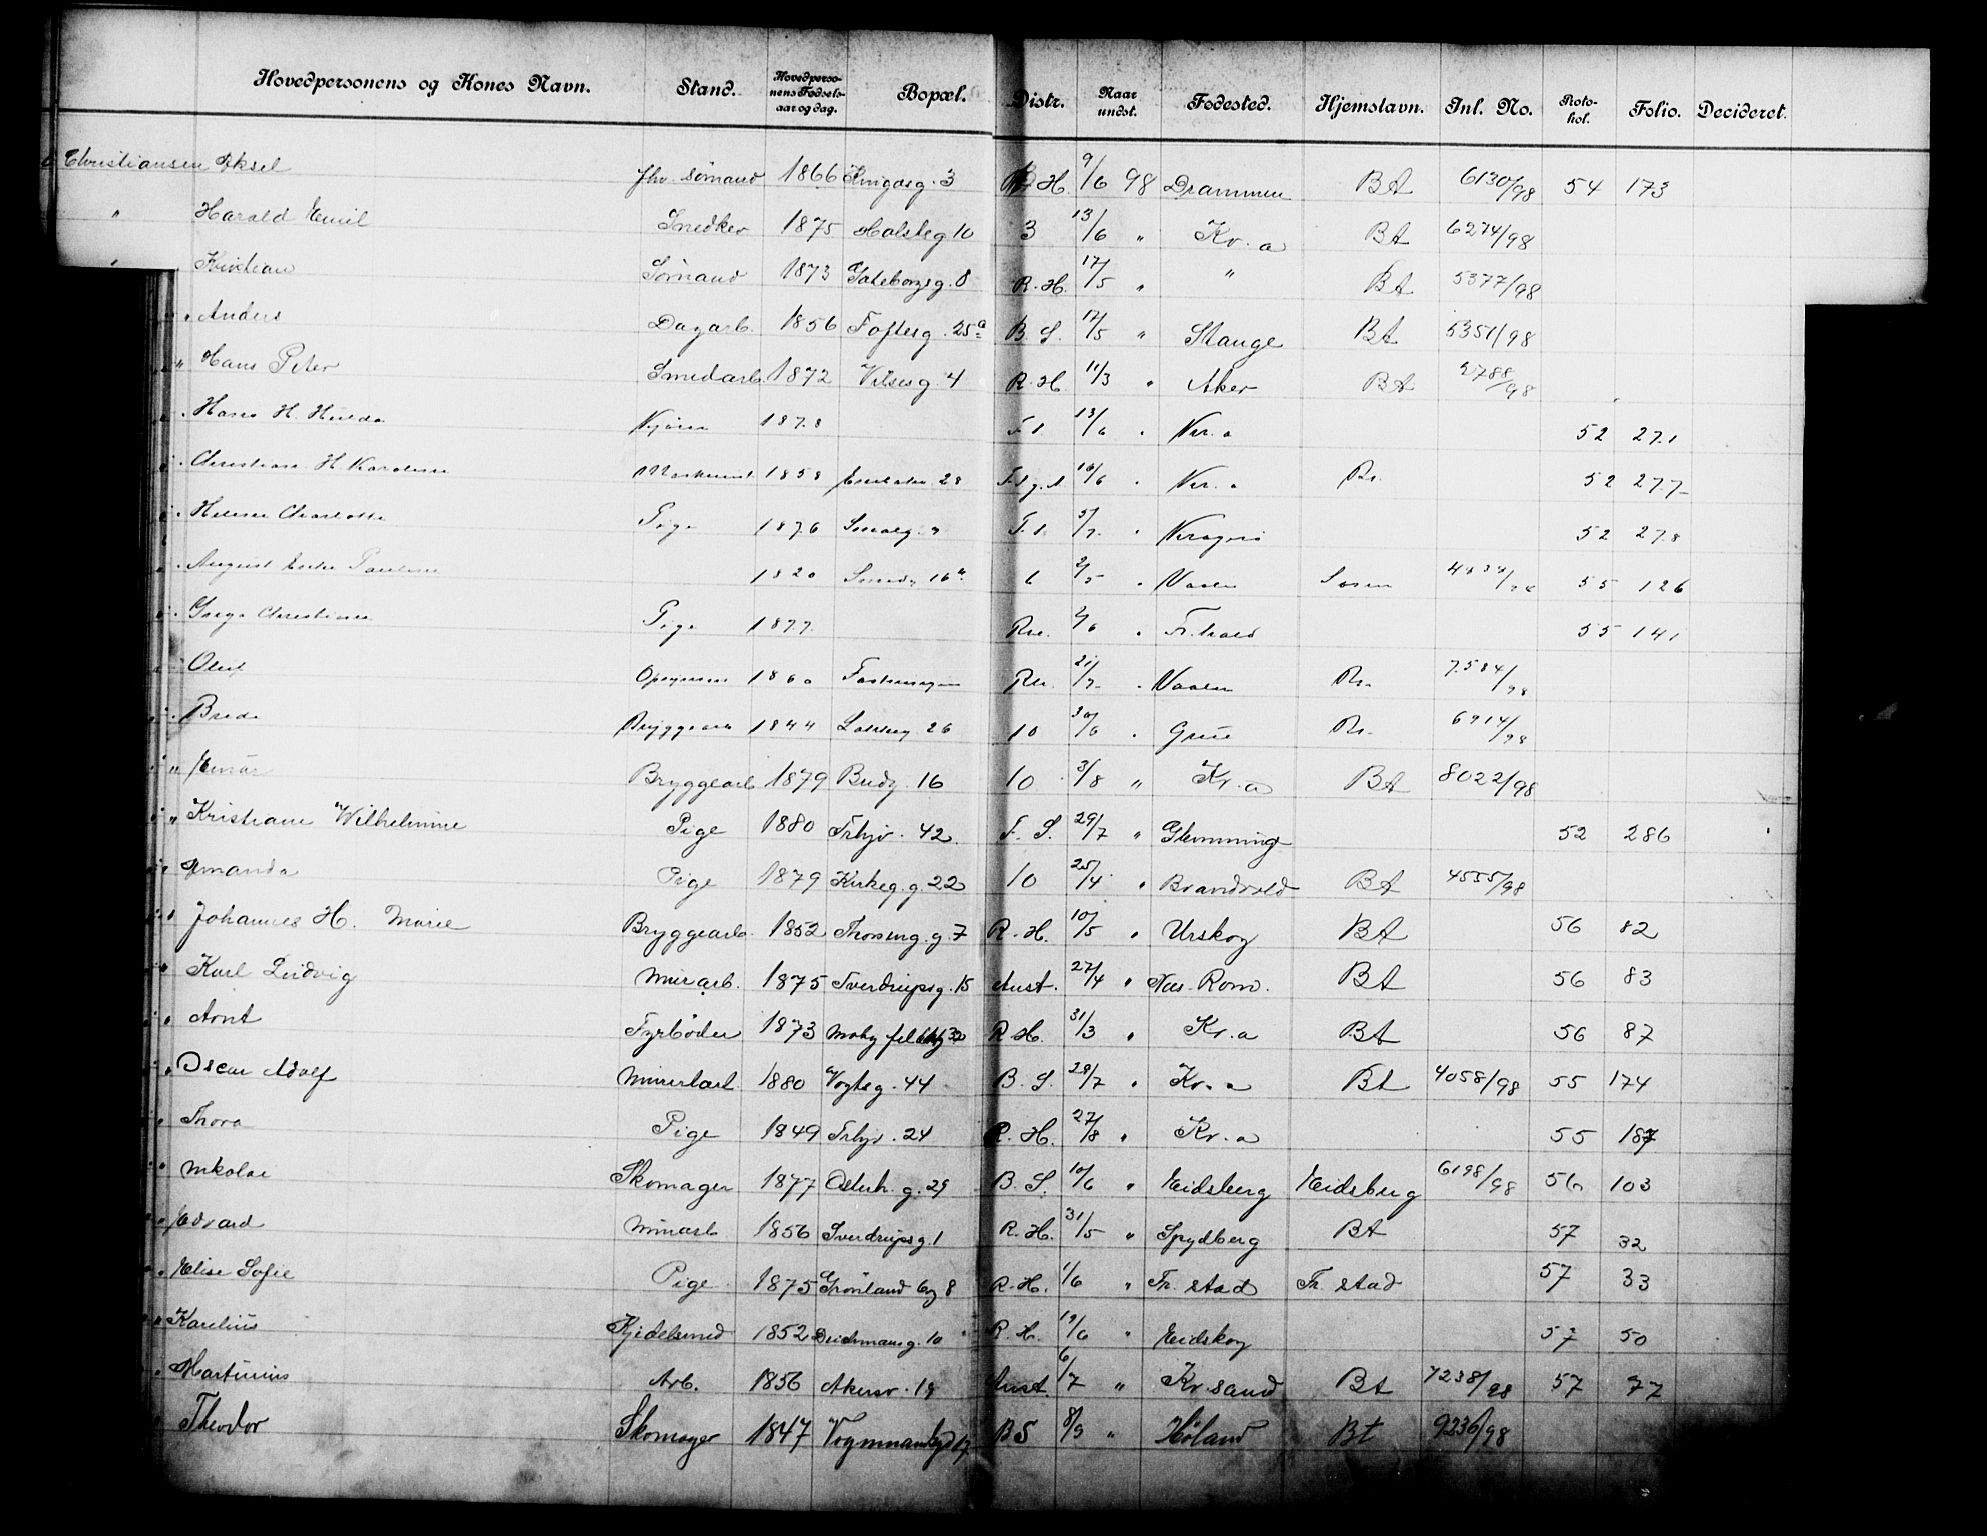 Hovedpersonens og Kones Navn. Stand. Hovedpersonens Fødselsaar og dag. Bopæl. Distr. Naar undst. Fødested. Hjemstavn. Inl. No. Protokol. Folio. Decideret.
Christiansen Aksel fhv. Sømand 1866 3 R.H. 9/6 98 Drammen BA 6130/98 54 173
" Harald Emil Snedker 1875 Holsteg 10 3 13/6 " Kr.a BA 6274/98
" Kristian Sømand 1873 Gøteborgsg. 8 R.H. 17/5 " " BA 5377/98
" Anders Dagarb. 1856 Toftesg. 25a B.S. 17/5 " Stange BA 5351/98
" Hans Peter Smedarb. 1872 Vibesg. 4 R.H. 11/3 " Aker BA 2788/98
" Hans H. Hulda 1878 F.S. 13/6 " Kr.a 52 271
" Christian H. Karoline 1858 28 16/6 " Kr.a 52 277
" Helene Charlotte Pige 1876 5/7 " Kragerø 52 278
" August Paulsen 1820 Smedg 16a 6 2/5 " Vaaler 55 126
" Inga Christiane Pige 1877 " Fr.hald 55 141
" Oluf 1860 21/7 " Vaaler 7584/98
" Bryggearb 1844 26 10 30/6 " Grue 6914/98
" Einar Bryggearb 1879 Brudg. 16 10 3/8 " Kr.a BA 8022/98
" Kristiane Wilhelmine Pige 1880 Trhjv. 42 F.S. 29/7 " Glemminge 52 286
" Amanda Pige 1879 Kirkeg.g. 22 10 25/4 " Brandvold BA 4555/98
" Johannes H. Marie Bryggearb. 1852 g. 7 R.H. 10/5 " Urskog BA 56 82
" Karl Ludvig Murarb. 1875 Sverdrupsg. 15 Anst. 27/4 " Næs. Rom. BA 56 83
" Arnt Fyrbøder 1873 32 R.H. 31/3 " Kr.a BA 56 87
" Oscar Adolf Murerarb. 1880 Vogtsg. 44 B.S. 28/7 " Kr.a BA 4058/98 55 174
" Thora Pige 1849 Trhjv. 24 R.H. 27/8 " Kr.a 55 187
" Nikolai Skomager 1877 Osterh.g. 29 B.S. 10/6 " Eidsberg Eidsberg 6198/98 56 103
" Edvard Murarb 1856 Sverdrupsg. 1 R.H. 31/5 " Spydberg BA 57 32
" Elise Sofie Pige 1875 Grønland 6og 8 R.H. 1/6 " Fr.stad Fr.stad 57 33
" Karelius Kjedelsmed 1852 Deichmansg. 10 R.H. 19/6 " Eidskog 57 50
" Martinius Arb. 1856 Akersv. 19 Anst. 6/7 " Kr.sand BA 7238/98 57 77
" Theodor Skomager 1847 Vognmandsgd 17 BS 8/9 " Høland BA 9236/98